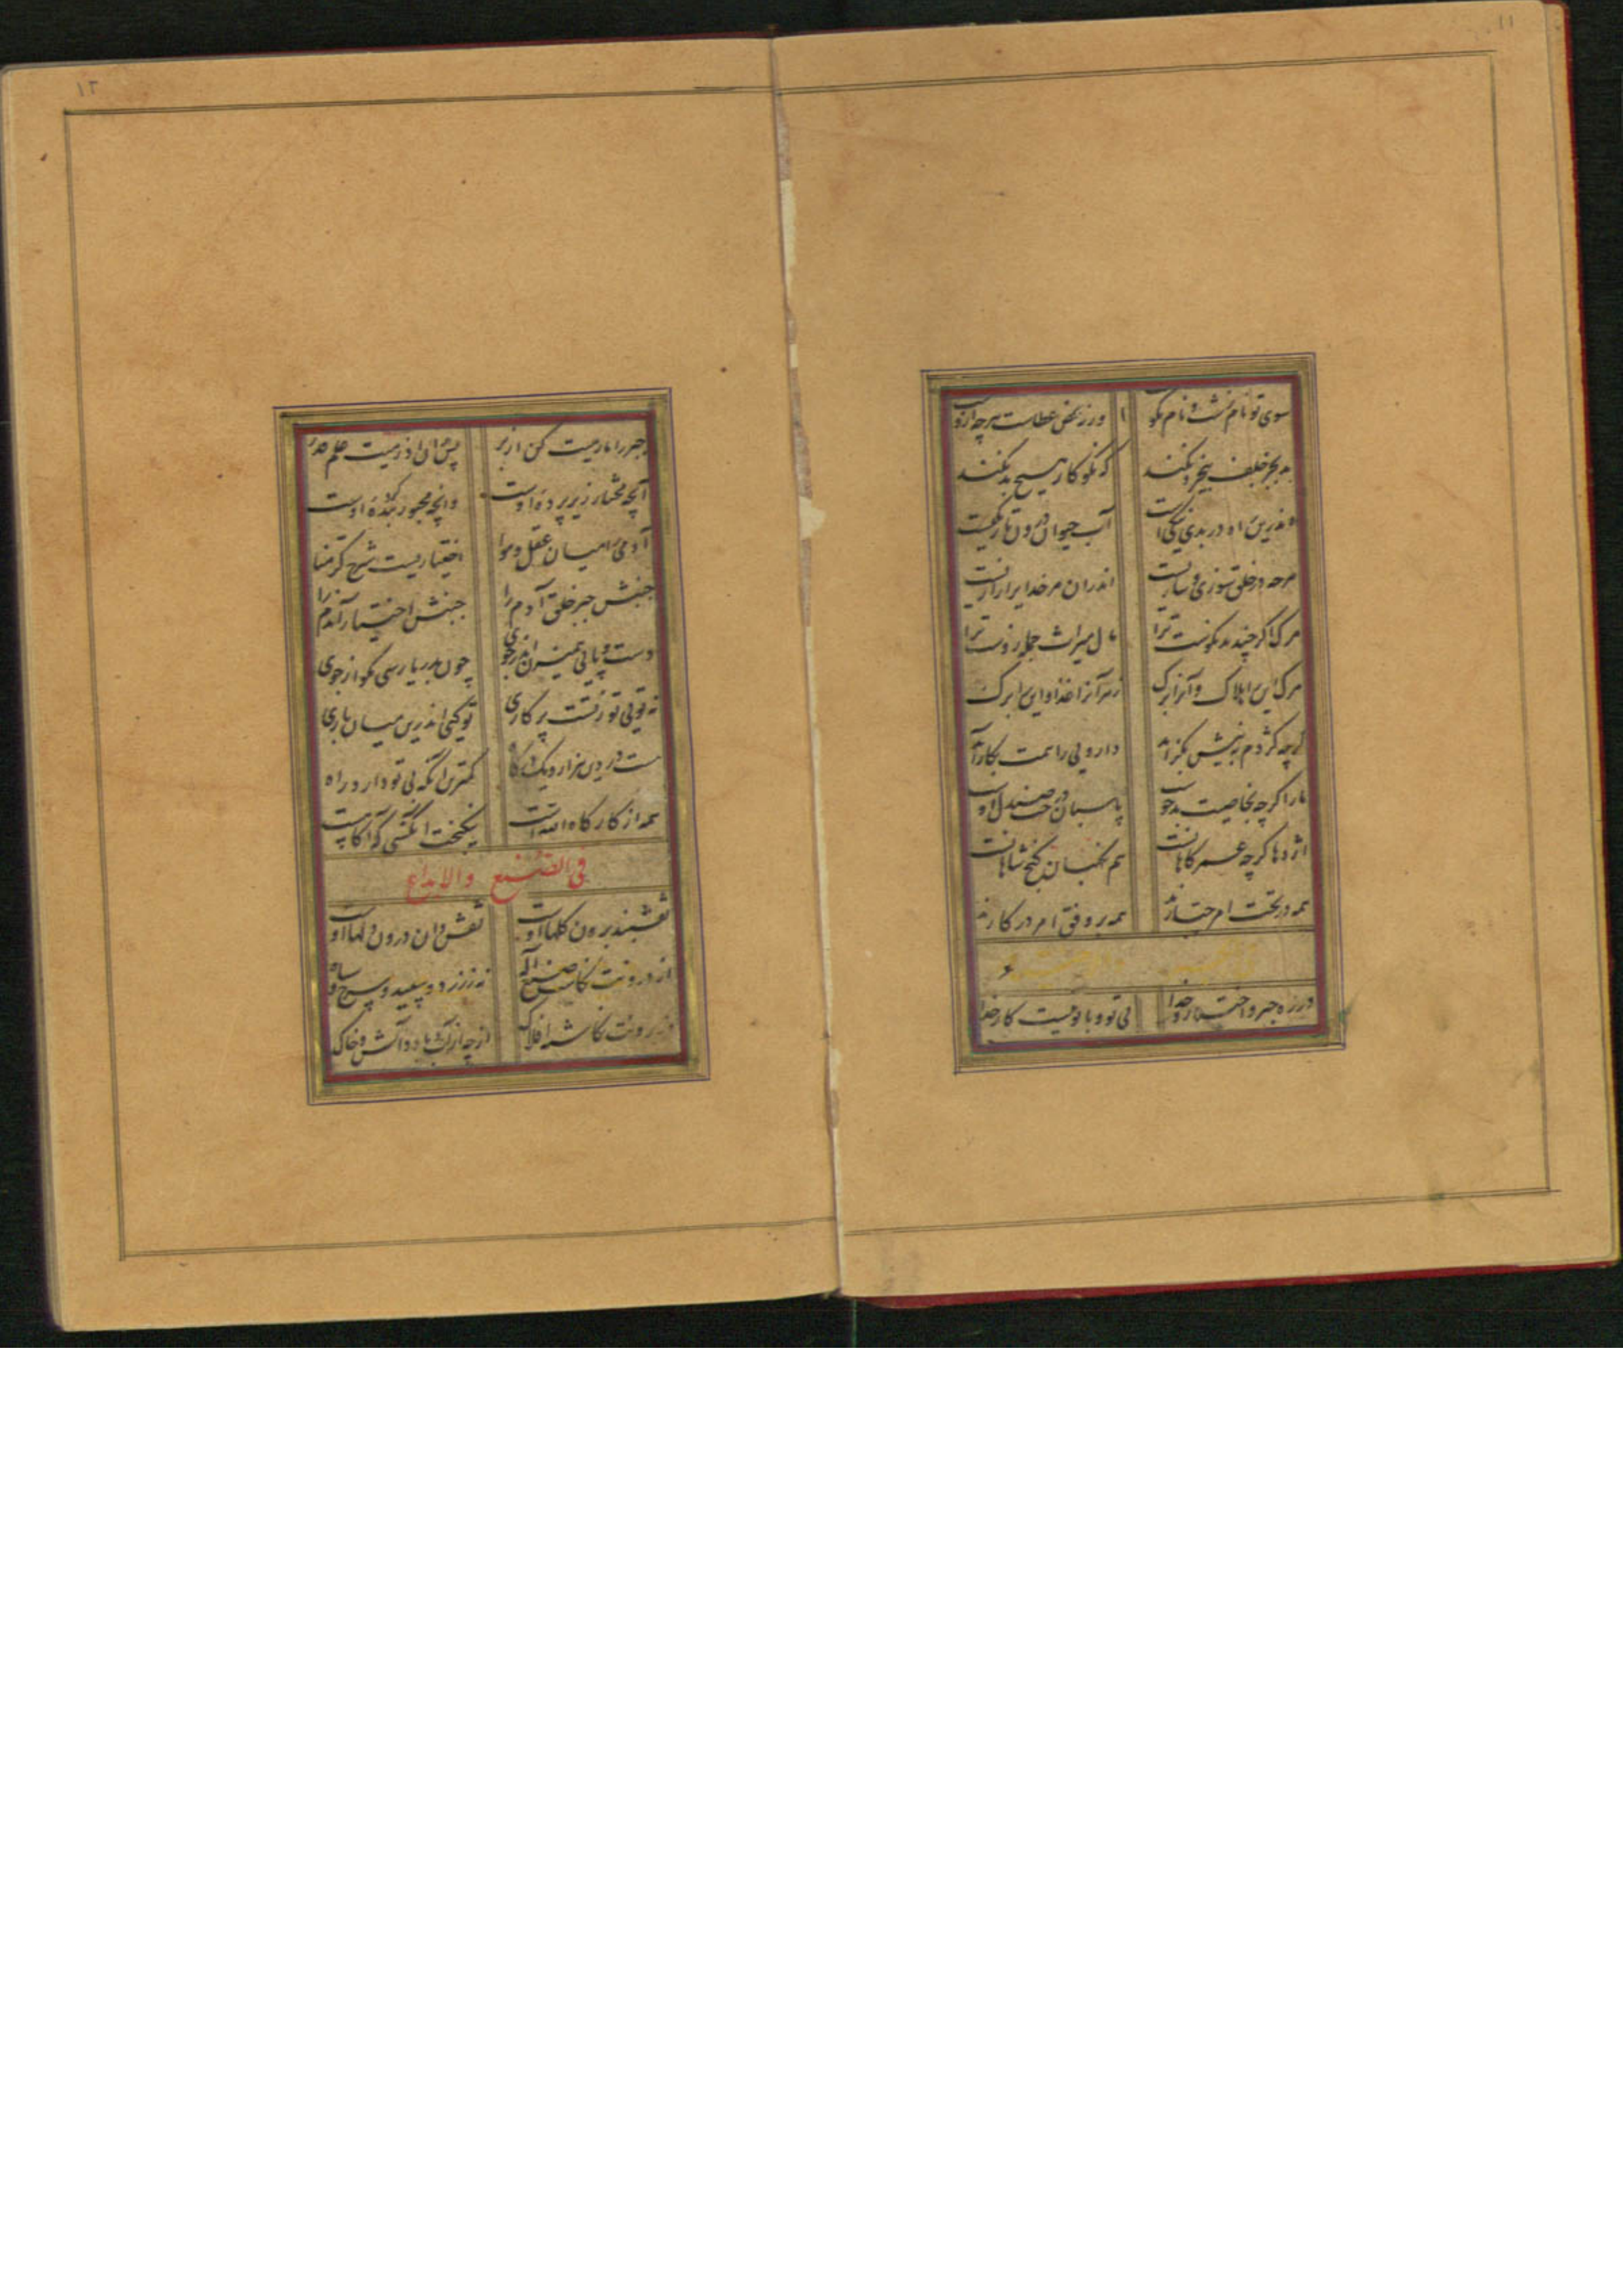 ۱۱
سوی تو نام زشت و نام نکو ورنه محض عطاست هرچه ازوست
بد بجز خلف بیخرد نکند که نکوکار هیچ بد نکند
اندرین راه در بدی نیکیست آب حیوان درون تاریکیست
هرچه در خلق سوزی و سازیست اندران مر خدایرا رازیست
مرک اگر چند بد نکوست ترا مال میراث جمله زوست ترا
مرک این را هلاک و آنرا برک زهر آنرا غذا و این را مرک
گرچه کژدم به نیش بگزاید دارویی را همت بکار آید
مار اگرچه بخاصیت بدخوست پاسبان درخت صندل اوست
اژدها گرچه عمر کاهانست هم نکهبان گنج شاهانست
همه در تحت امر جبارند همه بر وفق امر در کارند
در ره جبر و اختیار خدا بی تو و با تو نیست کار خدا
۱۲
جبر را مارمیت کن از بر پس بدان اذ رمیت علم قدر
آنچه مختار زیر پرده اوست وانچه مجبور بنده کرده اوست
آدمی را میان عقل و هوا اختیاریست شرح کرمنا
جنبش جبر خلق آدم را جنبش اختیار آدم را
دست و پایی همیزن اندر جوی چون بدریا رسی مکو از جوی
نه تویی تو زتست پرکاری تو کیی اندرین میان باری
هست در دین هزار و یک درگاه کمترین آنکه بی تو دارد راه
همه از کارکاه الله است نیکبخت آنکسی که آکاهست
فی الصنع والابداع
نقشبند برون کلها اوست نقش دان درون دلها اوست
از درونت نکاشت صنع اله نه ز زرد و سپید و سرخ و سیاه
وز برونت نکاشته افلاک از چه از آب و باد و آتش و خاک